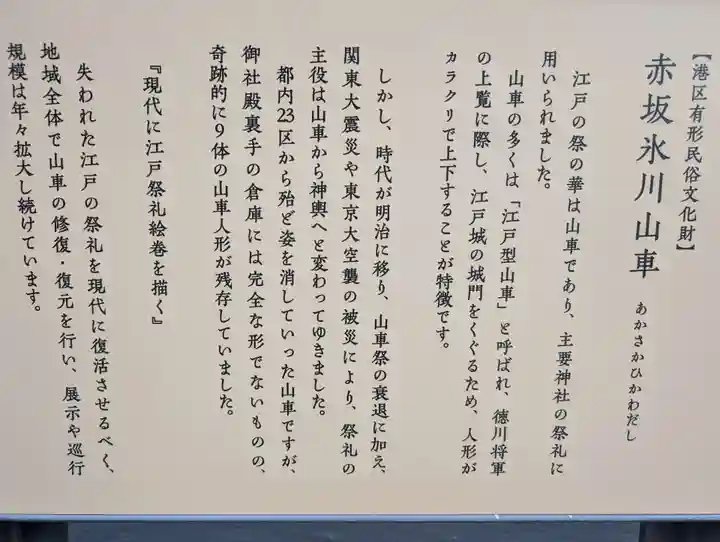 【港区有形民俗文化財】
赤坂氷川山車
あかさかひかわだし
江戸の祭の華は山車であり、主要神社の祭礼に
用いられました。
山車の多くは「江戸型山車」と呼ばれ、徳川将軍
の上覧に際し、江戸城の城門をくぐるため、人形が
カラクリで上下することが特徴です。
しかし、時代が明治に移り、山車祭の衰退に加え、
関東大震災や東京大空襲の被災により、祭礼の
主役は山車から神輿へと変わってゆきました。
都内23区から殆ど姿を消していった山車ですが、
御社殿裏手の倉庫には完全な形でないものの、
奇跡的に9体の山車人形が残存していました。
『現代に江戸祭礼絵巻を描く』
失われた江戸の祭礼を現代に復活させるべく、
地域全体で山車の修復・復元を行い、展示や巡行
規模は年々拡大し続けています。